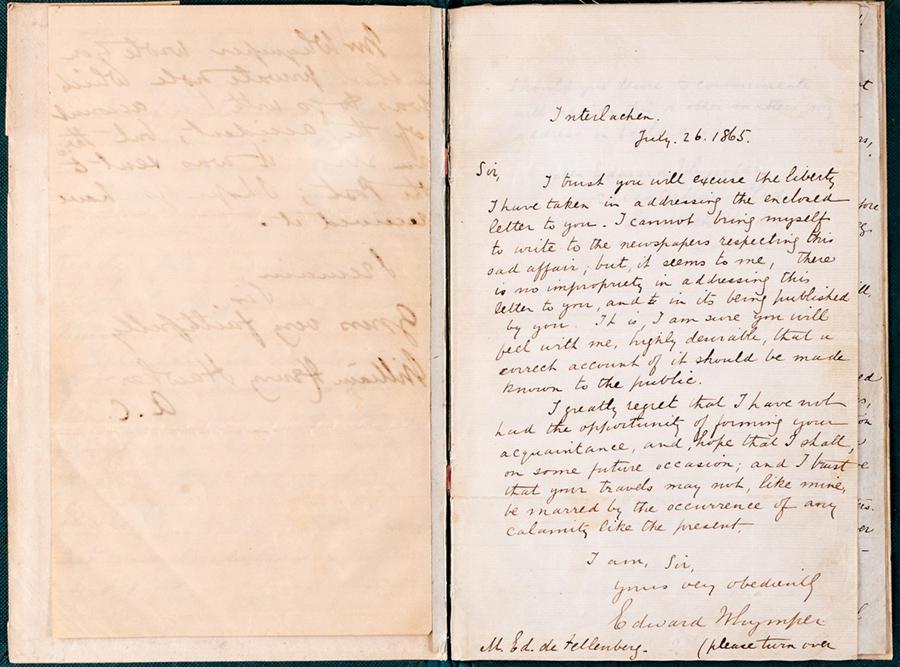 Mr Whymper wrote
this private note which
was to go with account
of the accident, but
it was sent to
Post, I hope have
received it.
I remain
Sir
Yours very faithfully
William Henry
A.C.
Interlachen.
July. 26. 1865.
Sir,
I trust you will excuse the liberty
I have taken in addressing the enclosed
letter to you. I cannot bring myself
to write to the newspapers respecting this
sad affair; but, it seems to me, there
is no impropriety in addressing this
letter to you, and in its being published
by you. It is, I am sure you will
feel with me, highly desirable, that a
correct account of it should be made
known to the public.
I greatly regret that I have not
had the opportunity of forming your
acquaintance, and, hope that I shall,
on some future occasion; and I trust
that your travels may not, like mine,
be marred by the occurrence of any
calamity like the present.
I am, Sir,
yours very obediently
Edward Whymper
M. Ed. de Fellenberg. (please turn over